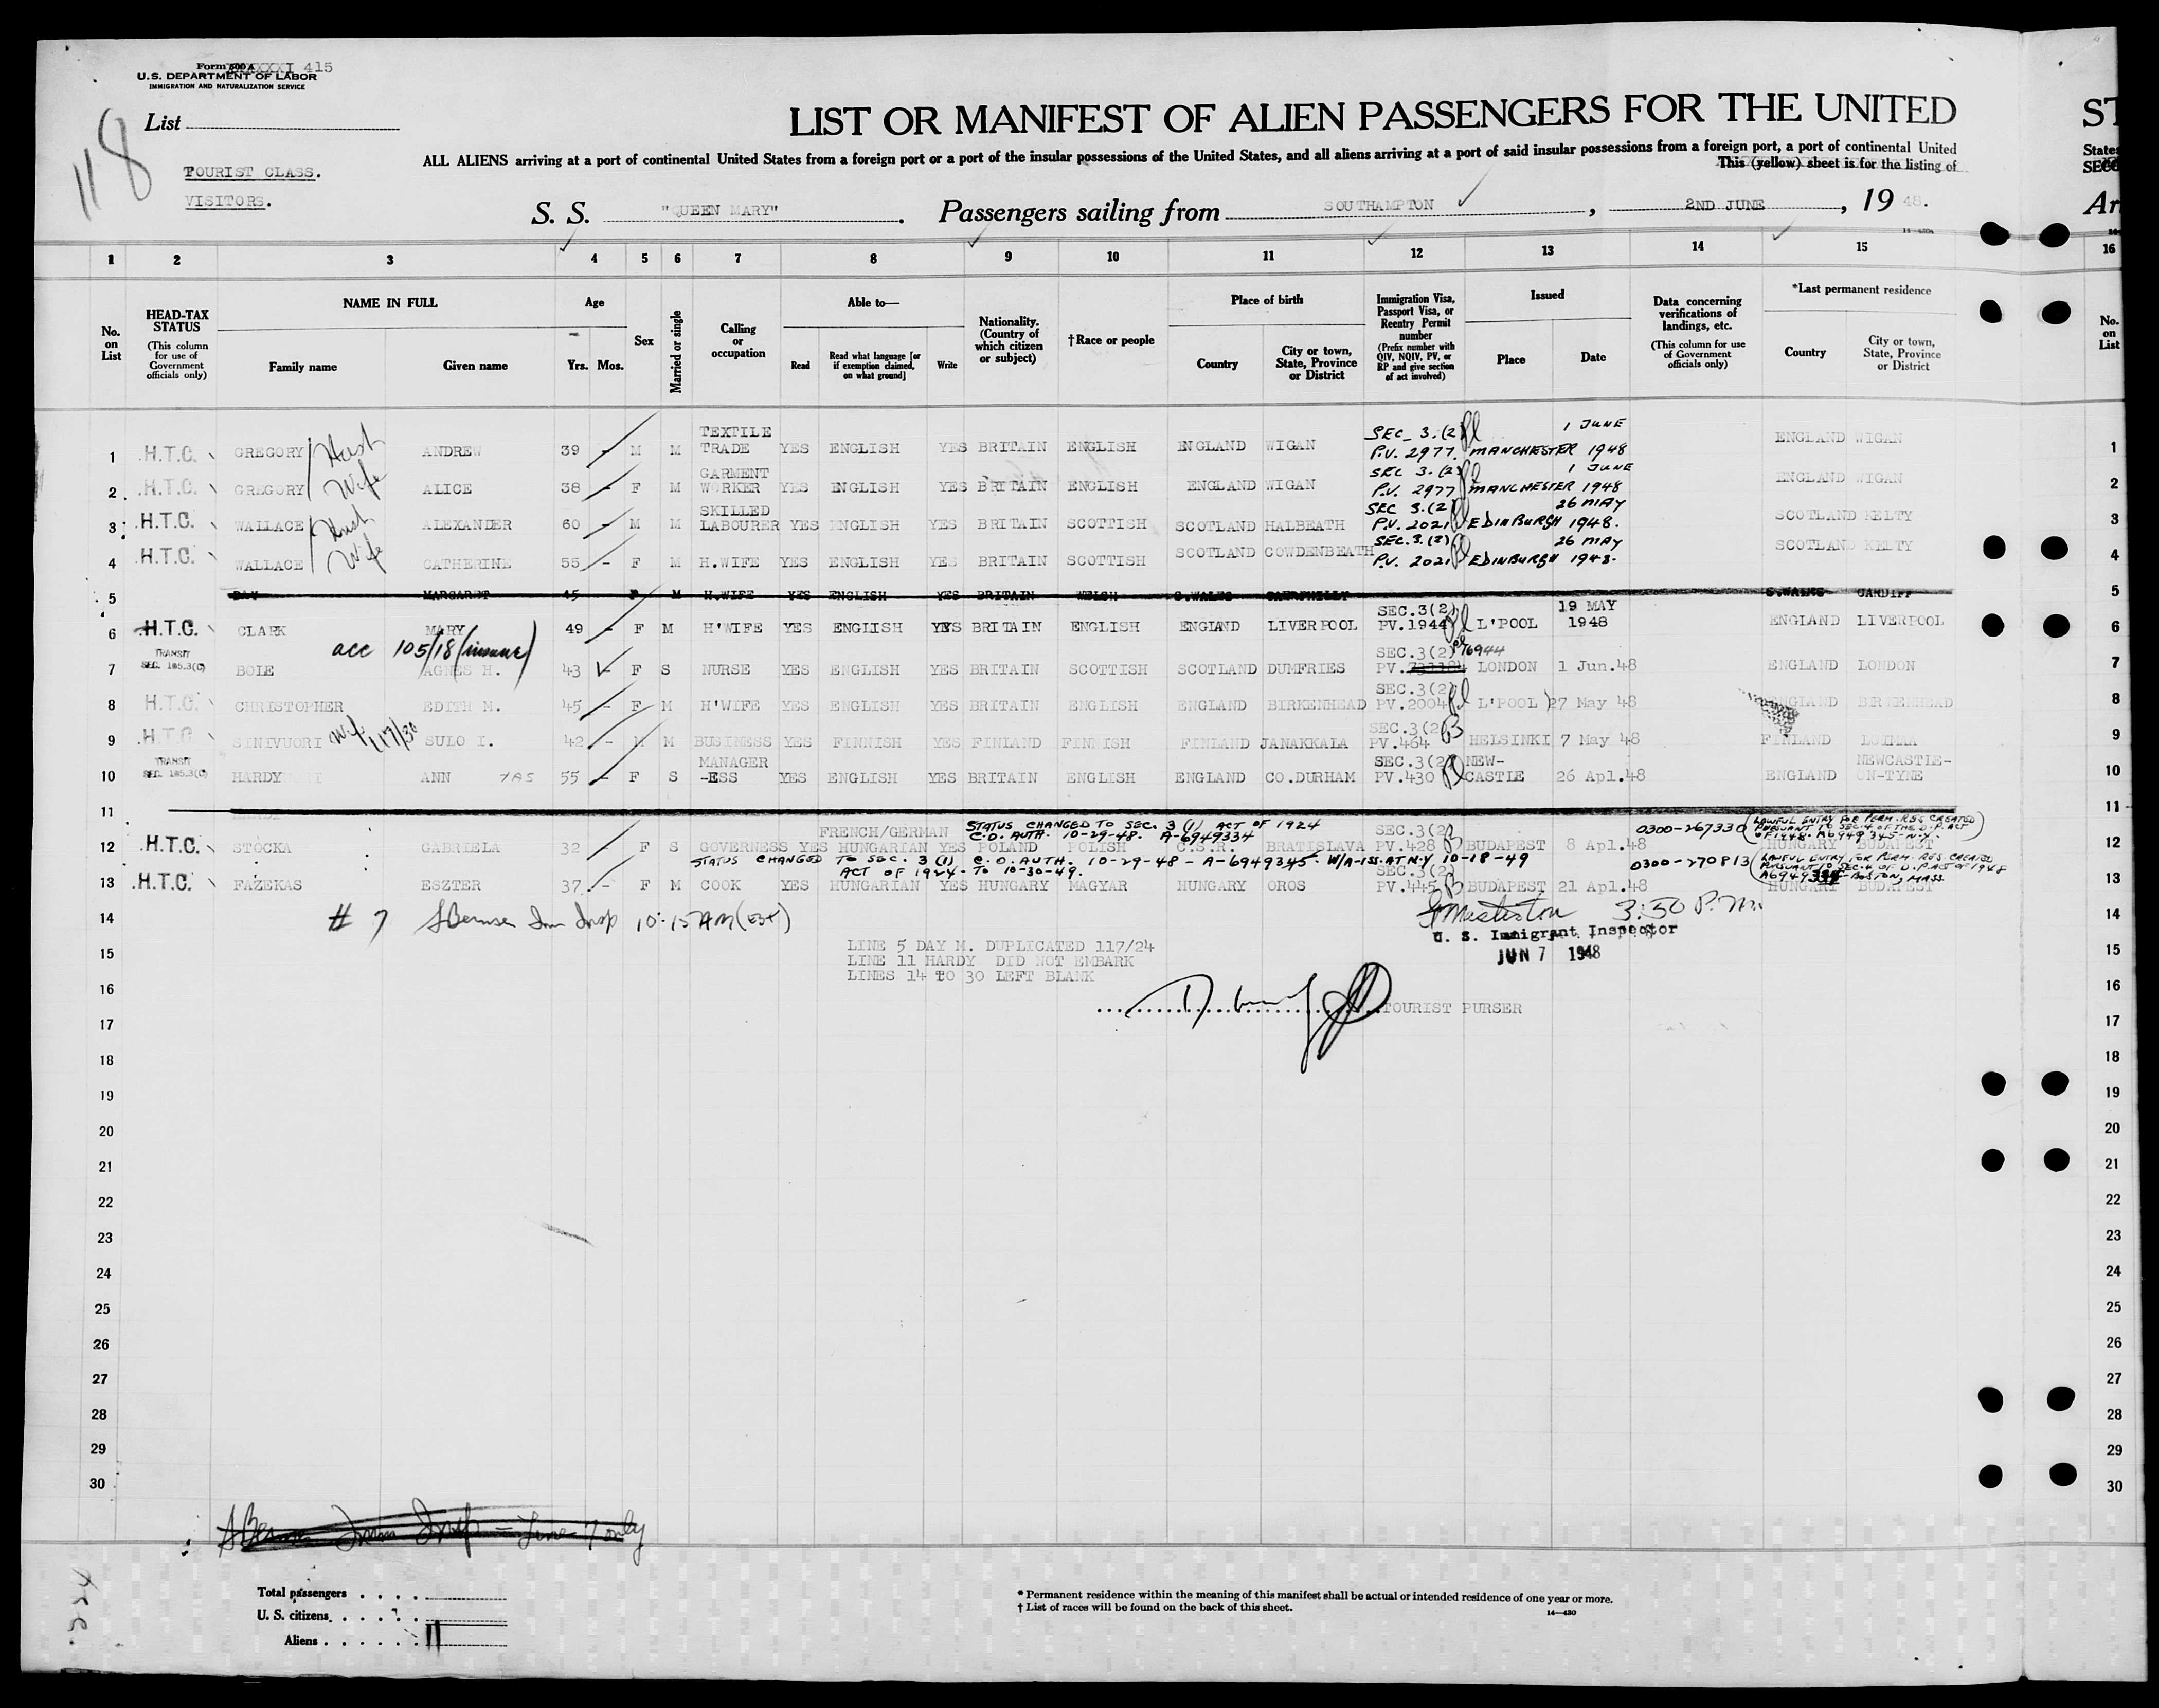 Form 500 A 415
U.S. DEPARTMENT OF LABOR
IMMIGRATION AND NATURALIZATION SERVICE
118
List
TOURIST CLASS.
VISITORS.
LIST OR MANIFEST OF ALIEN PASSENGERS FOR THE UNITED
ST
ALL ALIENS arriving at a port of continental United States from a foreign port or a port of the insular possessions of the United States, and all aliens arriving at a port of said insular possessions from a foreign port, a port of continental United
States
This (yellow) sheet is for the listing of
S. S. "QUEEN MARY". Passengers sailing from SOUTHAMPTON, 2ND JUNE, 19 48.
Ar
14-430a
1 2 3 4 5 6 7 8 9 10 11 12 13 14 15 16
No. on List
HEAD-TAX STATUS (This column for use of Government officials only)
NAME IN FULL Family name Given name
Age Yrs. Mos.
Sex
Married or single
Calling or occupation
Able to— Read Read what language [or if exemption claimed, on what ground] Write
Nationality. (Country of which citizen or subject)
†Race or people
Place of birth Country City or town, State, Province or District
Immigration Visa, Passport Visa, or Reentry Permit number (Prefix number with QIV, NQIV, PV, or RP and give section of act involved)
Issued Place Date
Data concerning verifications of landings, etc. (This column for use of Government officials only)
*Last permanent residence Country City or town, State, Province or District
No. on List
1 H.T.C. GREGORY Husb ANDREW 39 - M M TEXTILE TRADE YES ENGLISH YES BRITAIN ENGLISH ENGLAND WIGAN SEC. 3.(2) P.V. 2977. MANCHESTER 1 JUNE 1948 ENGLAND WIGAN 1
2 H.T.C. GREGORY Wife ALICE 38 - F M GARMENT WORKER YES ENGLISH YES BRITAIN ENGLISH ENGLAND WIGAN SEC 3.(2) P.V. 2977 MANCHESTER 1 JUNE 1948 ENGLAND WIGAN 2
3 H.T.C. WALLACE Husb ALEXANDER 60 - M M SKILLED LABOURER YES ENGLISH YES BRITAIN SCOTTISH SCOTLAND HALBEATH SEC 3.(2) P.V. 2021 EDINBURGH 26 MAY 1948. SCOTLAND KELTY 3
4 H.T.C. WALLACE Wife CATHERINE 55 - F M H.WIFE YES ENGLISH YES BRITAIN SCOTTISH SCOTLAND COWDENBEATH SEC.3.(2) P.V. 2021 EDINBURGH 26 MAY 1948. SCOTLAND KELTY 4
5 DAY MARGARET 45 F M H.WIFE YES ENGLISH YES BRITAIN WELSH S.WALES CAERPHILLY S.WALES CARDIFF 5
6 H.T.C. CLARK MARY 49 - F M H'WIFE YES ENGLISH YES BRITAIN ENGLISH ENGLAND LIVERPOOL SEC.3(2) PV.1944 L'POOL 19 MAY 1948 ENGLAND LIVERPOOL 6
acc 105/18 (insane)
7 TRANSIT SEC. 165.3(C) BOLE AGNES H. 43 F S NURSE YES ENGLISH YES BRITAIN SCOTTISH SCOTLAND DUMFRIES SEC.3(2) 76944 PV. LONDON 1 Jun.48 ENGLAND LONDON 7
8 H.T.C. CHRISTOPHER EDITH M. 45 - F M H'WIFE YES ENGLISH YES BRITAIN ENGLISH ENGLAND BIRKENHEAD SEC.3(2) PV.2004 L'POOL 27 May 48 ENGLAND BIRKENHEAD 8
9 H.T.C SINIVUORI Wife 117/30 SULO I. 42 - M M BUSINESS YES FINNISH YES FINLAND FINNISH FINLAND JANAKKALA SEC.3(2) PV.464 HELSINKI 7 May 48 FINLAND LOIMAA 9
10 TRANSIT SEC. 165.3(C) HARDY ANN 55 - F S MANAGER -ESS YES ENGLISH YES BRITAIN ENGLISH ENGLAND CO.DURHAM SEC.3(2) PV.430 NEW-CASTLE 26 Apl.48 ENGLAND NEWCASTLE-ON-TYNE 10
11 11
STATUS CHANGED TO SEC. 3 (1) ACT OF 1924 C.O. AUTH. 10-29-48. A-6949334
0300-267330 (LAWFUL ENTRY FOR PERM. RES. CREATED PURSUANT TO SEC. 4 OF THE D.P. ACT OF 1948. A6949345-N.Y.)
12 H.T.C. STOCKA GABRIELA 32 F S GOVERNESS YES FRENCH/GERMAN HUNGARIAN YES POLAND POLISH C.S.R. BRATISLAVA SEC.3(2) PV.428 BUDAPEST 8 Apl.48 HUNGARY BUDAPEST 12
STATUS CHANGED TO SEC. 3 (1) C.O. AUTH. 10-29-48 - A-6949345 W/A-ISS. AT N.Y 10-18-49
ACT OF 1924. TO 10-30-49.
0300-270813 (LAWFUL ENTRY FOR PERM. RES. CREATED PURSUANT TO SEC. 4 OF D.P. ACT OF 1948 A6949334 - BOSTON, MASS.
13 H.T.C. FAZEKAS ESZTER 37 - F M COOK YES HUNGARIAN YES HUNGARY MAGYAR HUNGARY OROS SEC.3(2) PV.445 BUDAPEST 21 Apl.48 HUNGARY BUDAPEST 13
14 # 7 Imm Insp 10:15 AM (EST) 3:50 P.M. 14
U. S. Immigrant Inspector
15 LINE 5 DAY M. DUPLICATED 117/24 JUN 7 1948 15
LINE 11 HARDY DID NOT EMBARK
LINES 14 TO 30 LEFT BLANK
16 16
TOURIST PURSER
17 17
18 18
19 19
20 20
21 21
22 22
23 23
24 24
25 25
26 26
27 27
28 28
29 29
30 30
Imm Insp - Line 7 only
Total passengers
U. S. citizens
Aliens 11
* Permanent residence within the meaning of this manifest shall be actual or intended residence of one year or more.
† List of races will be found on the back of this sheet.
14-430